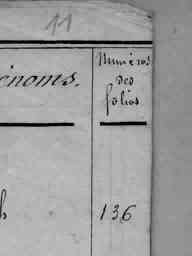 11
énoms.
Numéros
des
folios
h
136